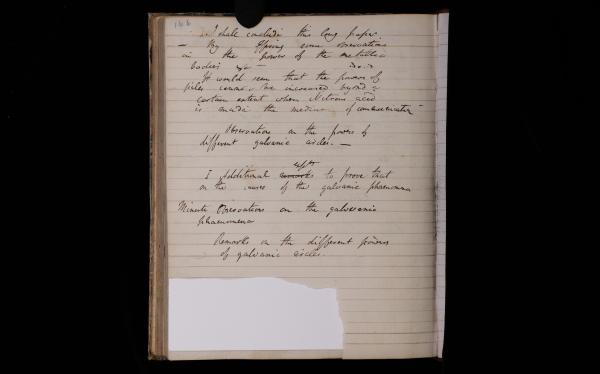 I shall conclude this long paper.
— By offering some observations
on the powers of the metallic
bodies
It would seem that the powers of
piles cannot be increased beyond a
certain extent when Nitrous acid
is made the medium of communication
Observations on the powers of
different galvanic circles. —
I Additional expts to prove that
on the causes of the galvanic phaenomena
Minute Observations on the galvanic
phaenomena
Remarks on the different powers
of galvanic circles.